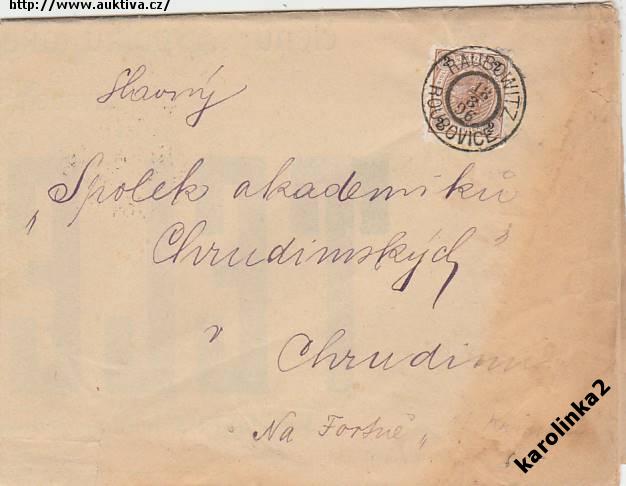 http://www.auktiva.cz/
RAUBOWITZ
18
3
96
ROUBOVICE
Slavný
„Spolek akademiků
Chrudimských"
v
Chrudimi
Na Fortně"
karolinka2